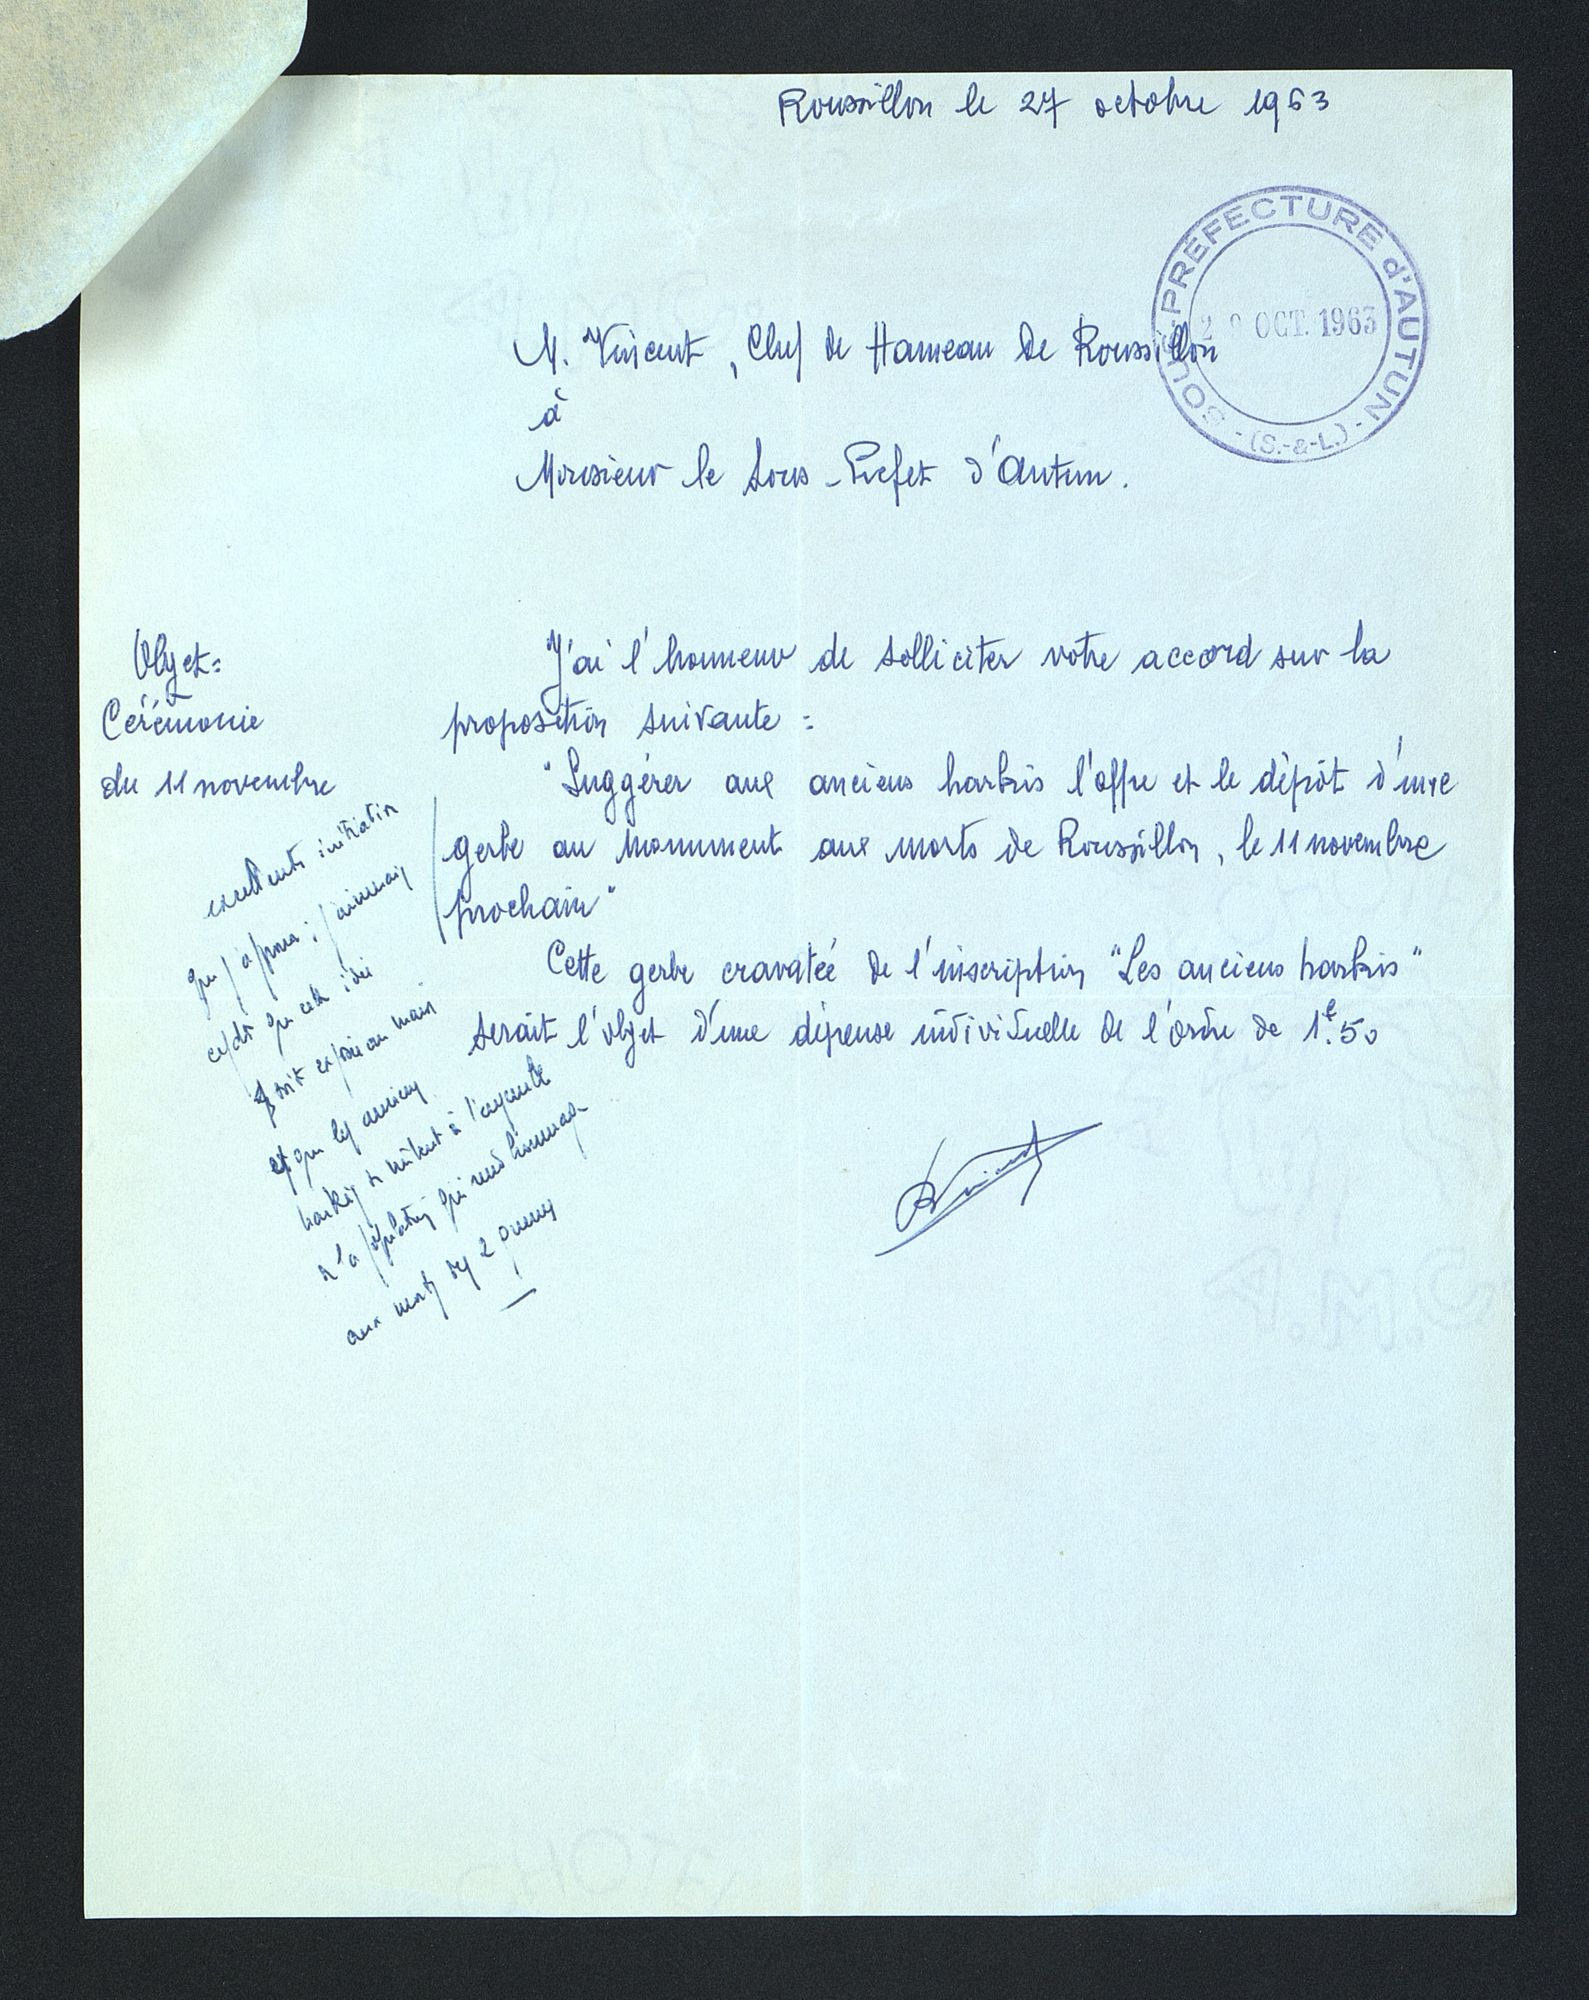 Roussillon le 27 octobre 1963
SOUS-PRÉFECTURE d'AUTUN
-(S.-&-L.)-
OCT. 1963
M. Vincent, Chef de Hameau de Roussillon
à
Monsieur le Sous-Préfet d'Autun.
Objet =
Cérémonie
du 11 novembre
J'ai l'honneur de solliciter votre accord sur la
proposition suivante :
"Suggérer aux anciens harkis l'offre et le dépôt d'une
gerbe au Monument aux morts de Roussillon, le 11 novembre
prochain"
Cette gerbe cravatée de l'inscription "Les anciens harkis"
serait l'objet d'une dépense individuelle de l'ordre de 1f.50
excellente initiative
que j'approuve ; j'aimerais
que cette idée
soit exposée au maire
et que les anciens
harkis se mêlent à l'ensemble
de la population qui rend hommage
aux morts des 2 guerres